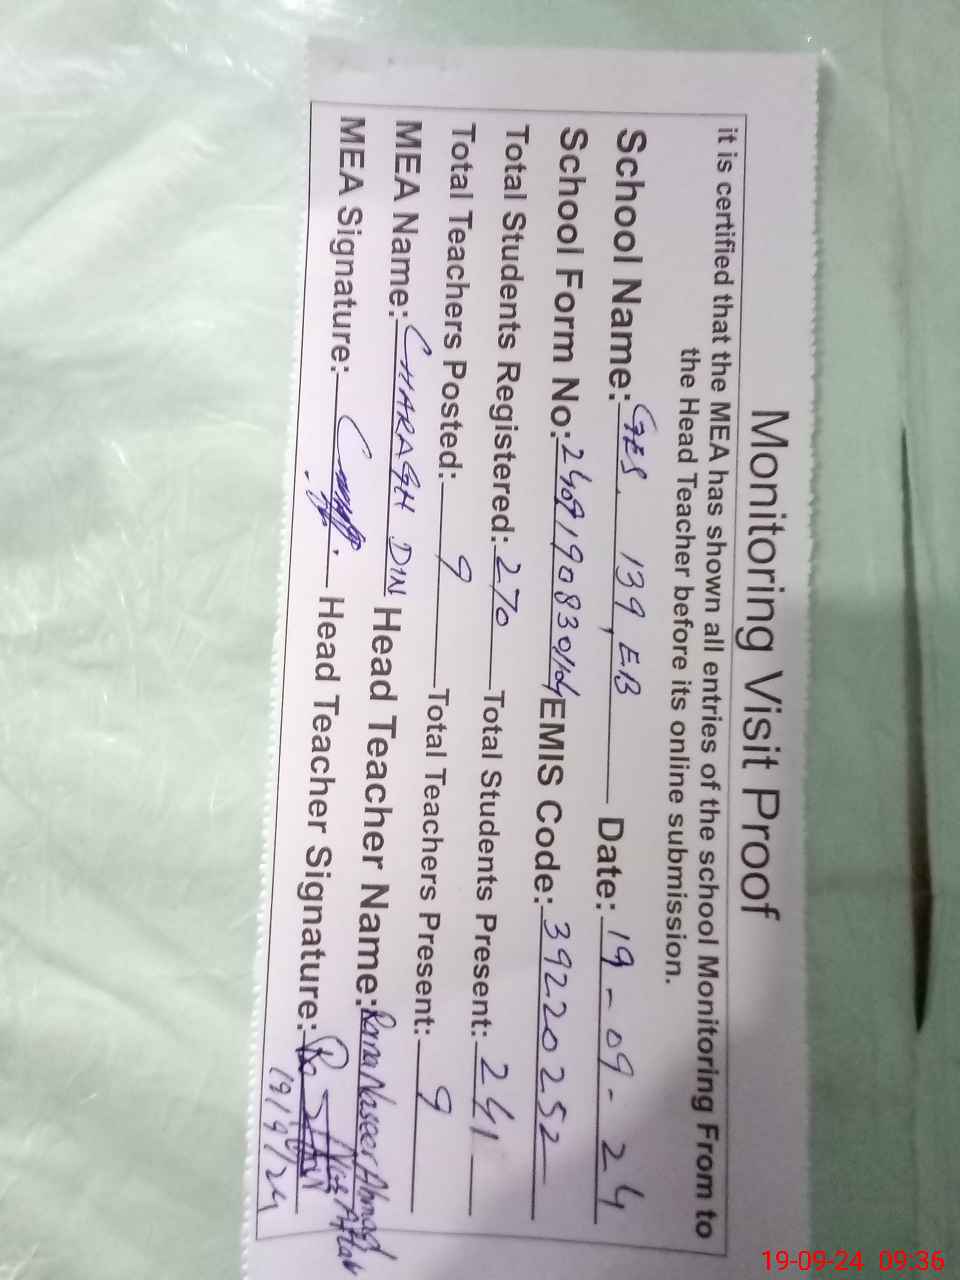 Monitoring Visit Proof
it is certified that the MEA has shown all entries of the school Monitoring From to
the Head Teacher before its online submission.
School Name: GES 139, EB Date: 19-09-24
School Form No: EMIS Code: 39220252
Total Students Registered: 270 Total Students Present: 241
Total Teachers Posted: 9 Total Teachers Present: 9
MEA Name: CHARAGH DIN Head Teacher Name: Rana Naseer Ahmad
MEA Signature: Head Teacher Signature:
19/9/24
19-09-24 09:36